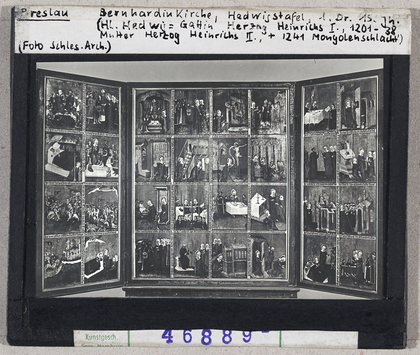 Breslau Bernhardinkirche, Hedwigstafel, 1. Dr. 15. Jh.
(Hl. Hedwig = Gattin Herzog Heinrichs I., 1201-38
Mutter Herzog Heinrichs II., + 1241 Mongolenschlacht)
(Foto Schles. Arch.)
Kunstgesch.
46889-